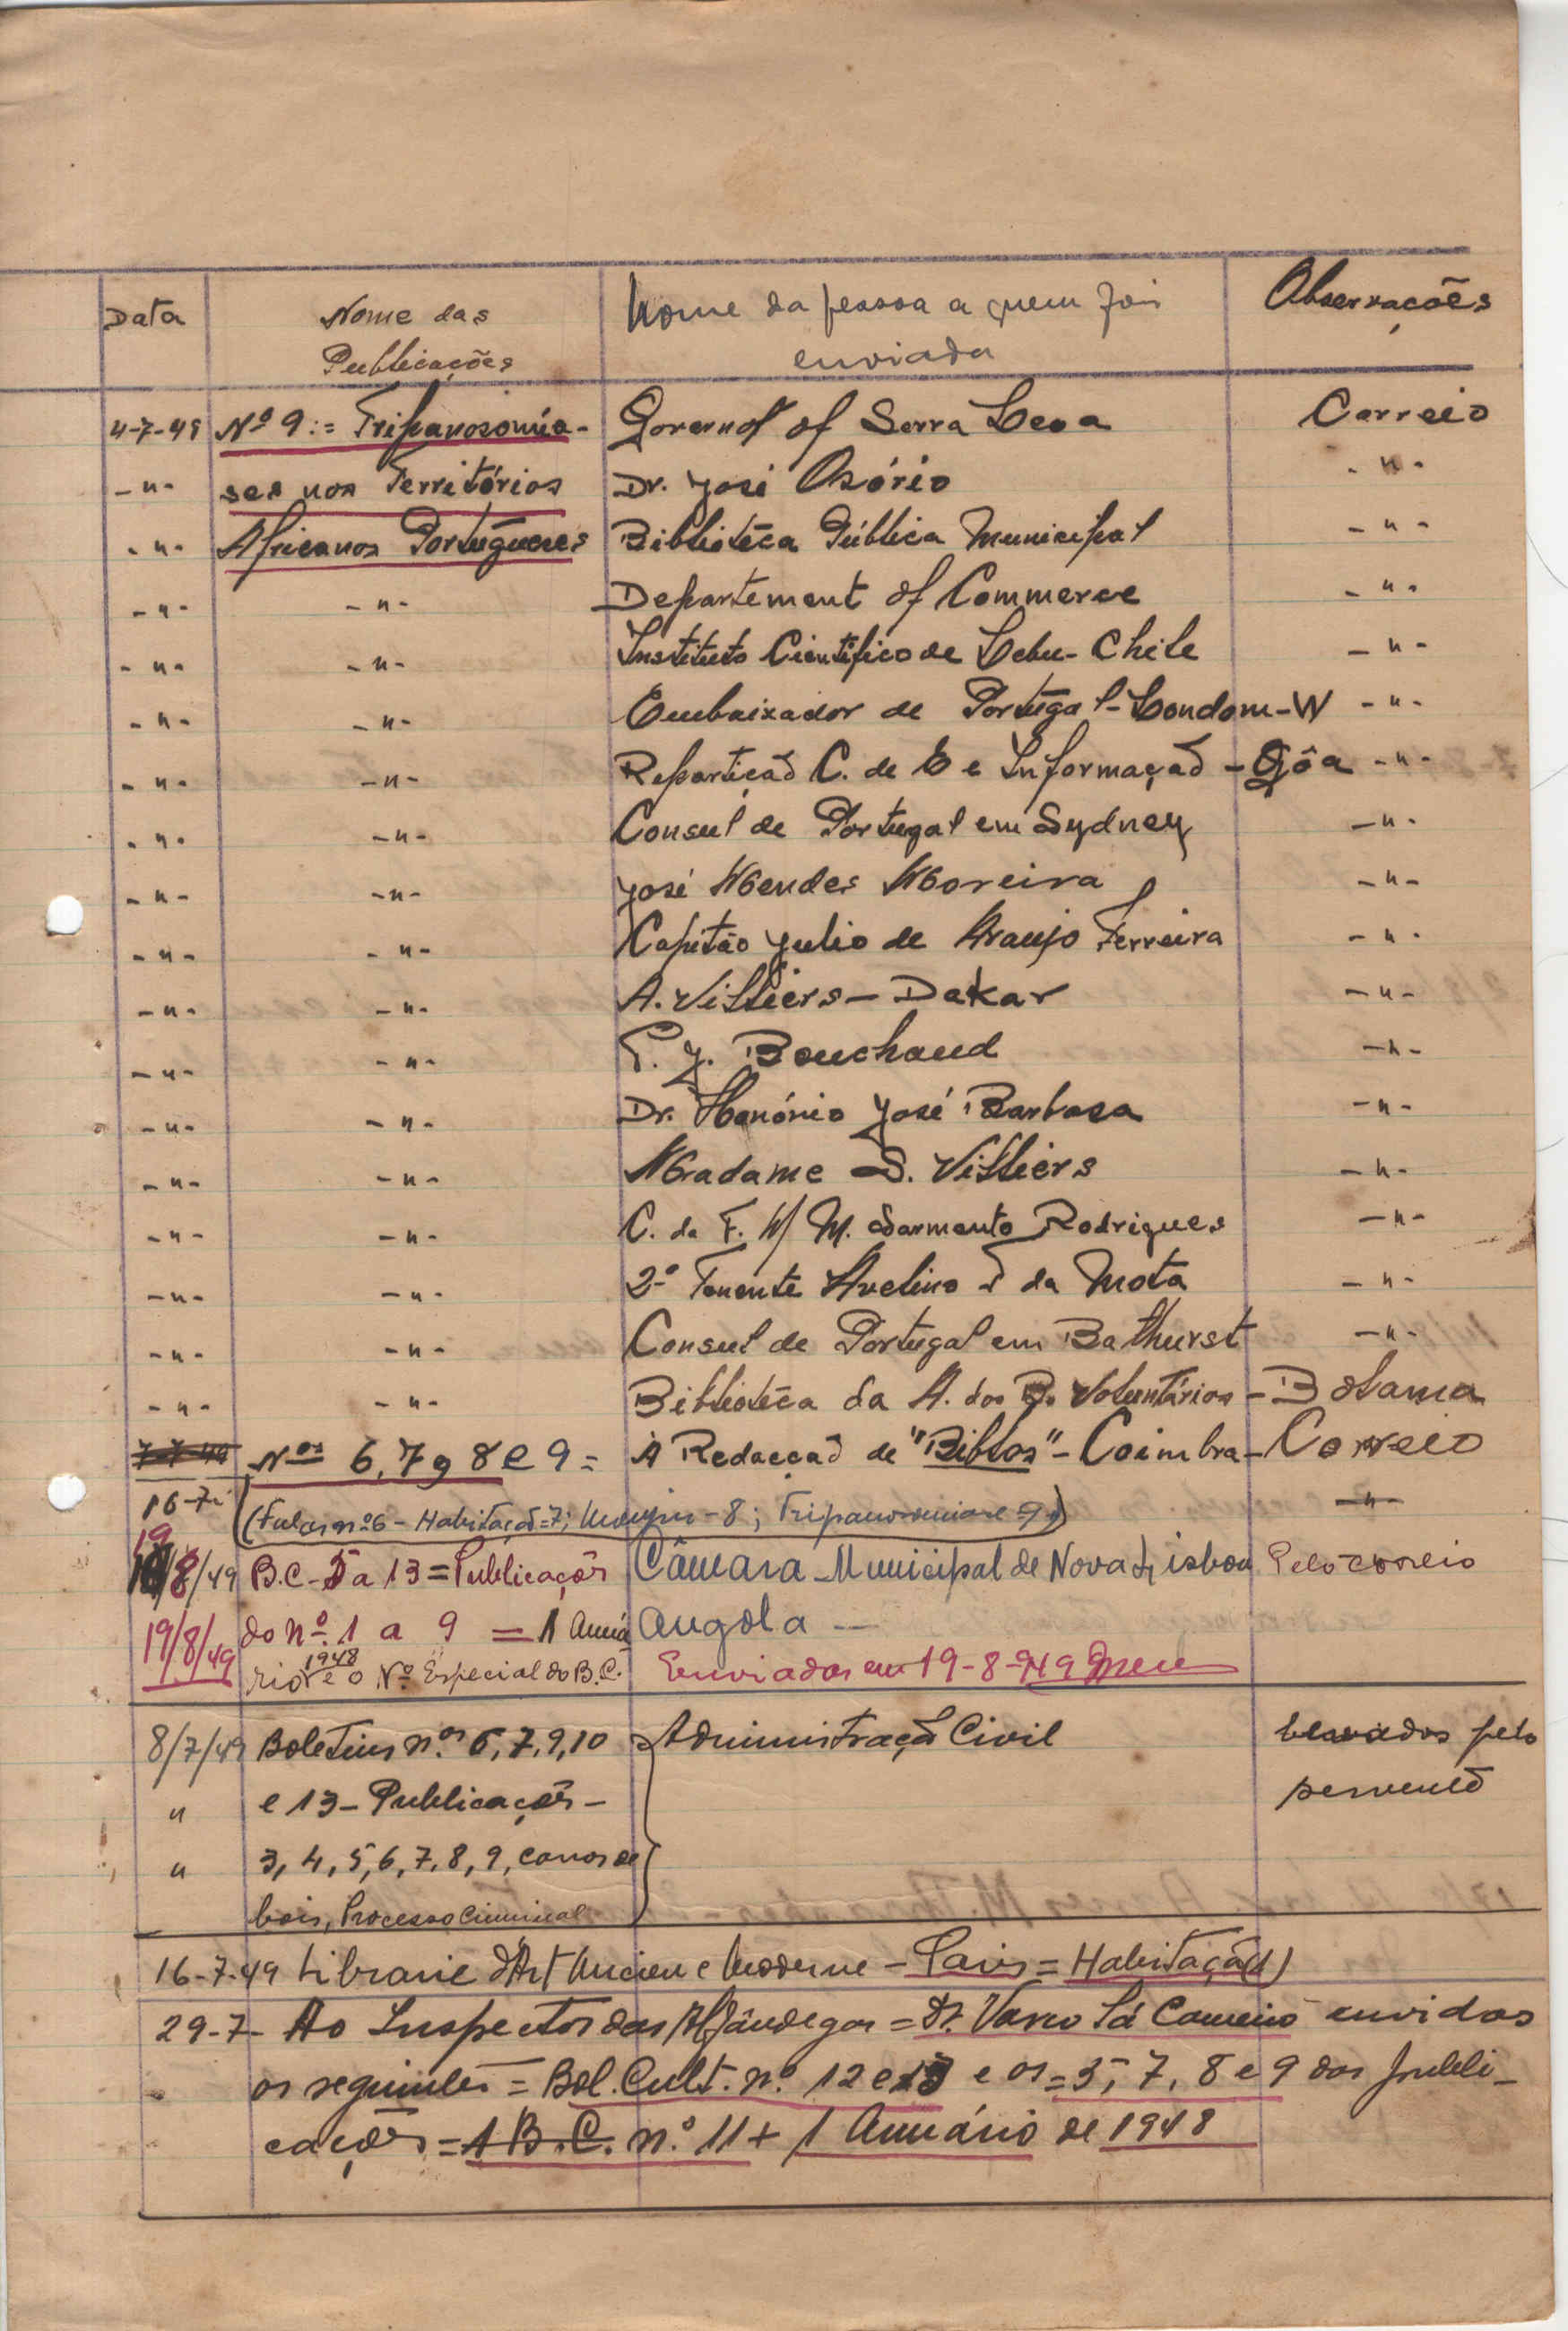 Data Nome das Nome da pessoa a quem foi Observações
Publicações enviada
4-7-49 Nº 9:= Tripanosomía- Governof of Serra Leoa Correio
-"- ses nos Territórios Dr. José Osório -"-
-"- Africanos Portugueses Bibliotéca Pública Municipal -"-
-"- -"- Departement of Commerce -"-
-"- -"- Instituto Científico de Lebu-Chile -"-
-"- -"- Embaixador de Portugal-Londom-W -"-
-"- -"- Repartiçaõ C. de E e Informaçaõ - Gôa -"-
-"- -"- Consul de Portugal em Sydney -"-
-"- -"- José Mendes Moreira -"-
-"- -"- Capitão Julio de Araujo Ferreira -"-
-"- -"- A. Villiers - Dakar -"-
-"- -"- P. J. Bouchaud -"-
-"- -"- Dr. Honório José Barbosa -"-
-"- -"- Madame S. Villiers -"-
-"- -"- C. de F. M. Sarmento Rodrigues -"-
-"- -"- 2º Tenente Avelino T da Mota -"-
-"- -"- Consul de Portugal em Bathurst -"-
-"- -"- Bibliotéca da A. dos B. Voluntários - Bolama
7-7-49 Nos 6, 7, 8 e 9 = A Redacçaõ de "Biblos" - Coimbra - Correio
16-7- (Fulas nº 6 - Habitaçaõ=7; - 8; Tripanosomiase 9) -"-
19/8/49 B.C. 5 a 13 = Publicações Câmara Municipal de Nova Lisboa Pelo correio
19/8/49 do nº 1 a 9 = 1 Anuá Angola -
rio 1948 e o Nº Especial do B.C. Enviados em 19-8-949
8/7/49 Boletins n.os 6, 7, 9, 10 Administraçaõ Civil levados pelo
" e 13 - Publicações - servente
" 3, 4, 5, 6, 7, 8, 9, carros de
bois, Processo Criminal
16-7-49 Librarie d'Art Ancien e Moderne - Paris = Habitaçaõ (1)
29-7- Ao Inspector das Alfândegas = Dr. Vasco Sá Carneiro enviados
os seguintes = Bol. Cult. n.º 12 e 13 e os = 5, 7, 8 e 9 das publi-
cações = 1 B.C. n.º 11 + 1 Anuário de 1948